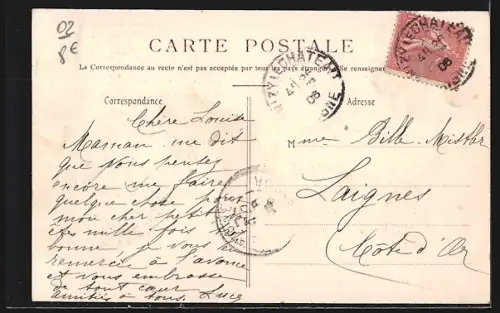 02
8€
CARTE POSTALE
La Correspondance au recto n'est pas acceptée par tous les pays étrangers. Se renseigner
Correspondance
Adresse
VIZY-LE-CHATEAU
08
AISNE
Chère Louise
Maman me dit
que vous pensez
encore me faire
quelque chose pour
mon cher petit
êtes mille fois
bonne je vous
remercie à l'avance
et vous embrasse
de tout cœur
amitiés à tous. Luce
Mme Bille-Mistler
Laignes
Côte d'Or